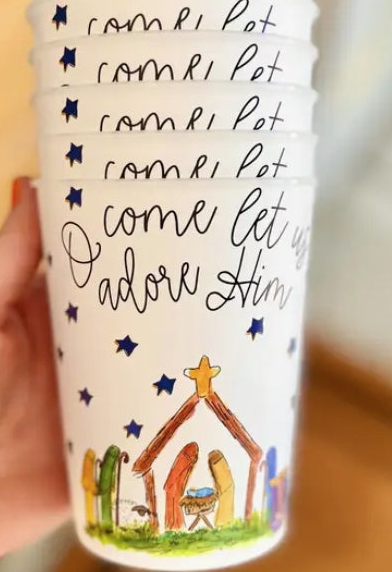 come let
come let
come let
come let
O come let us
adore Him